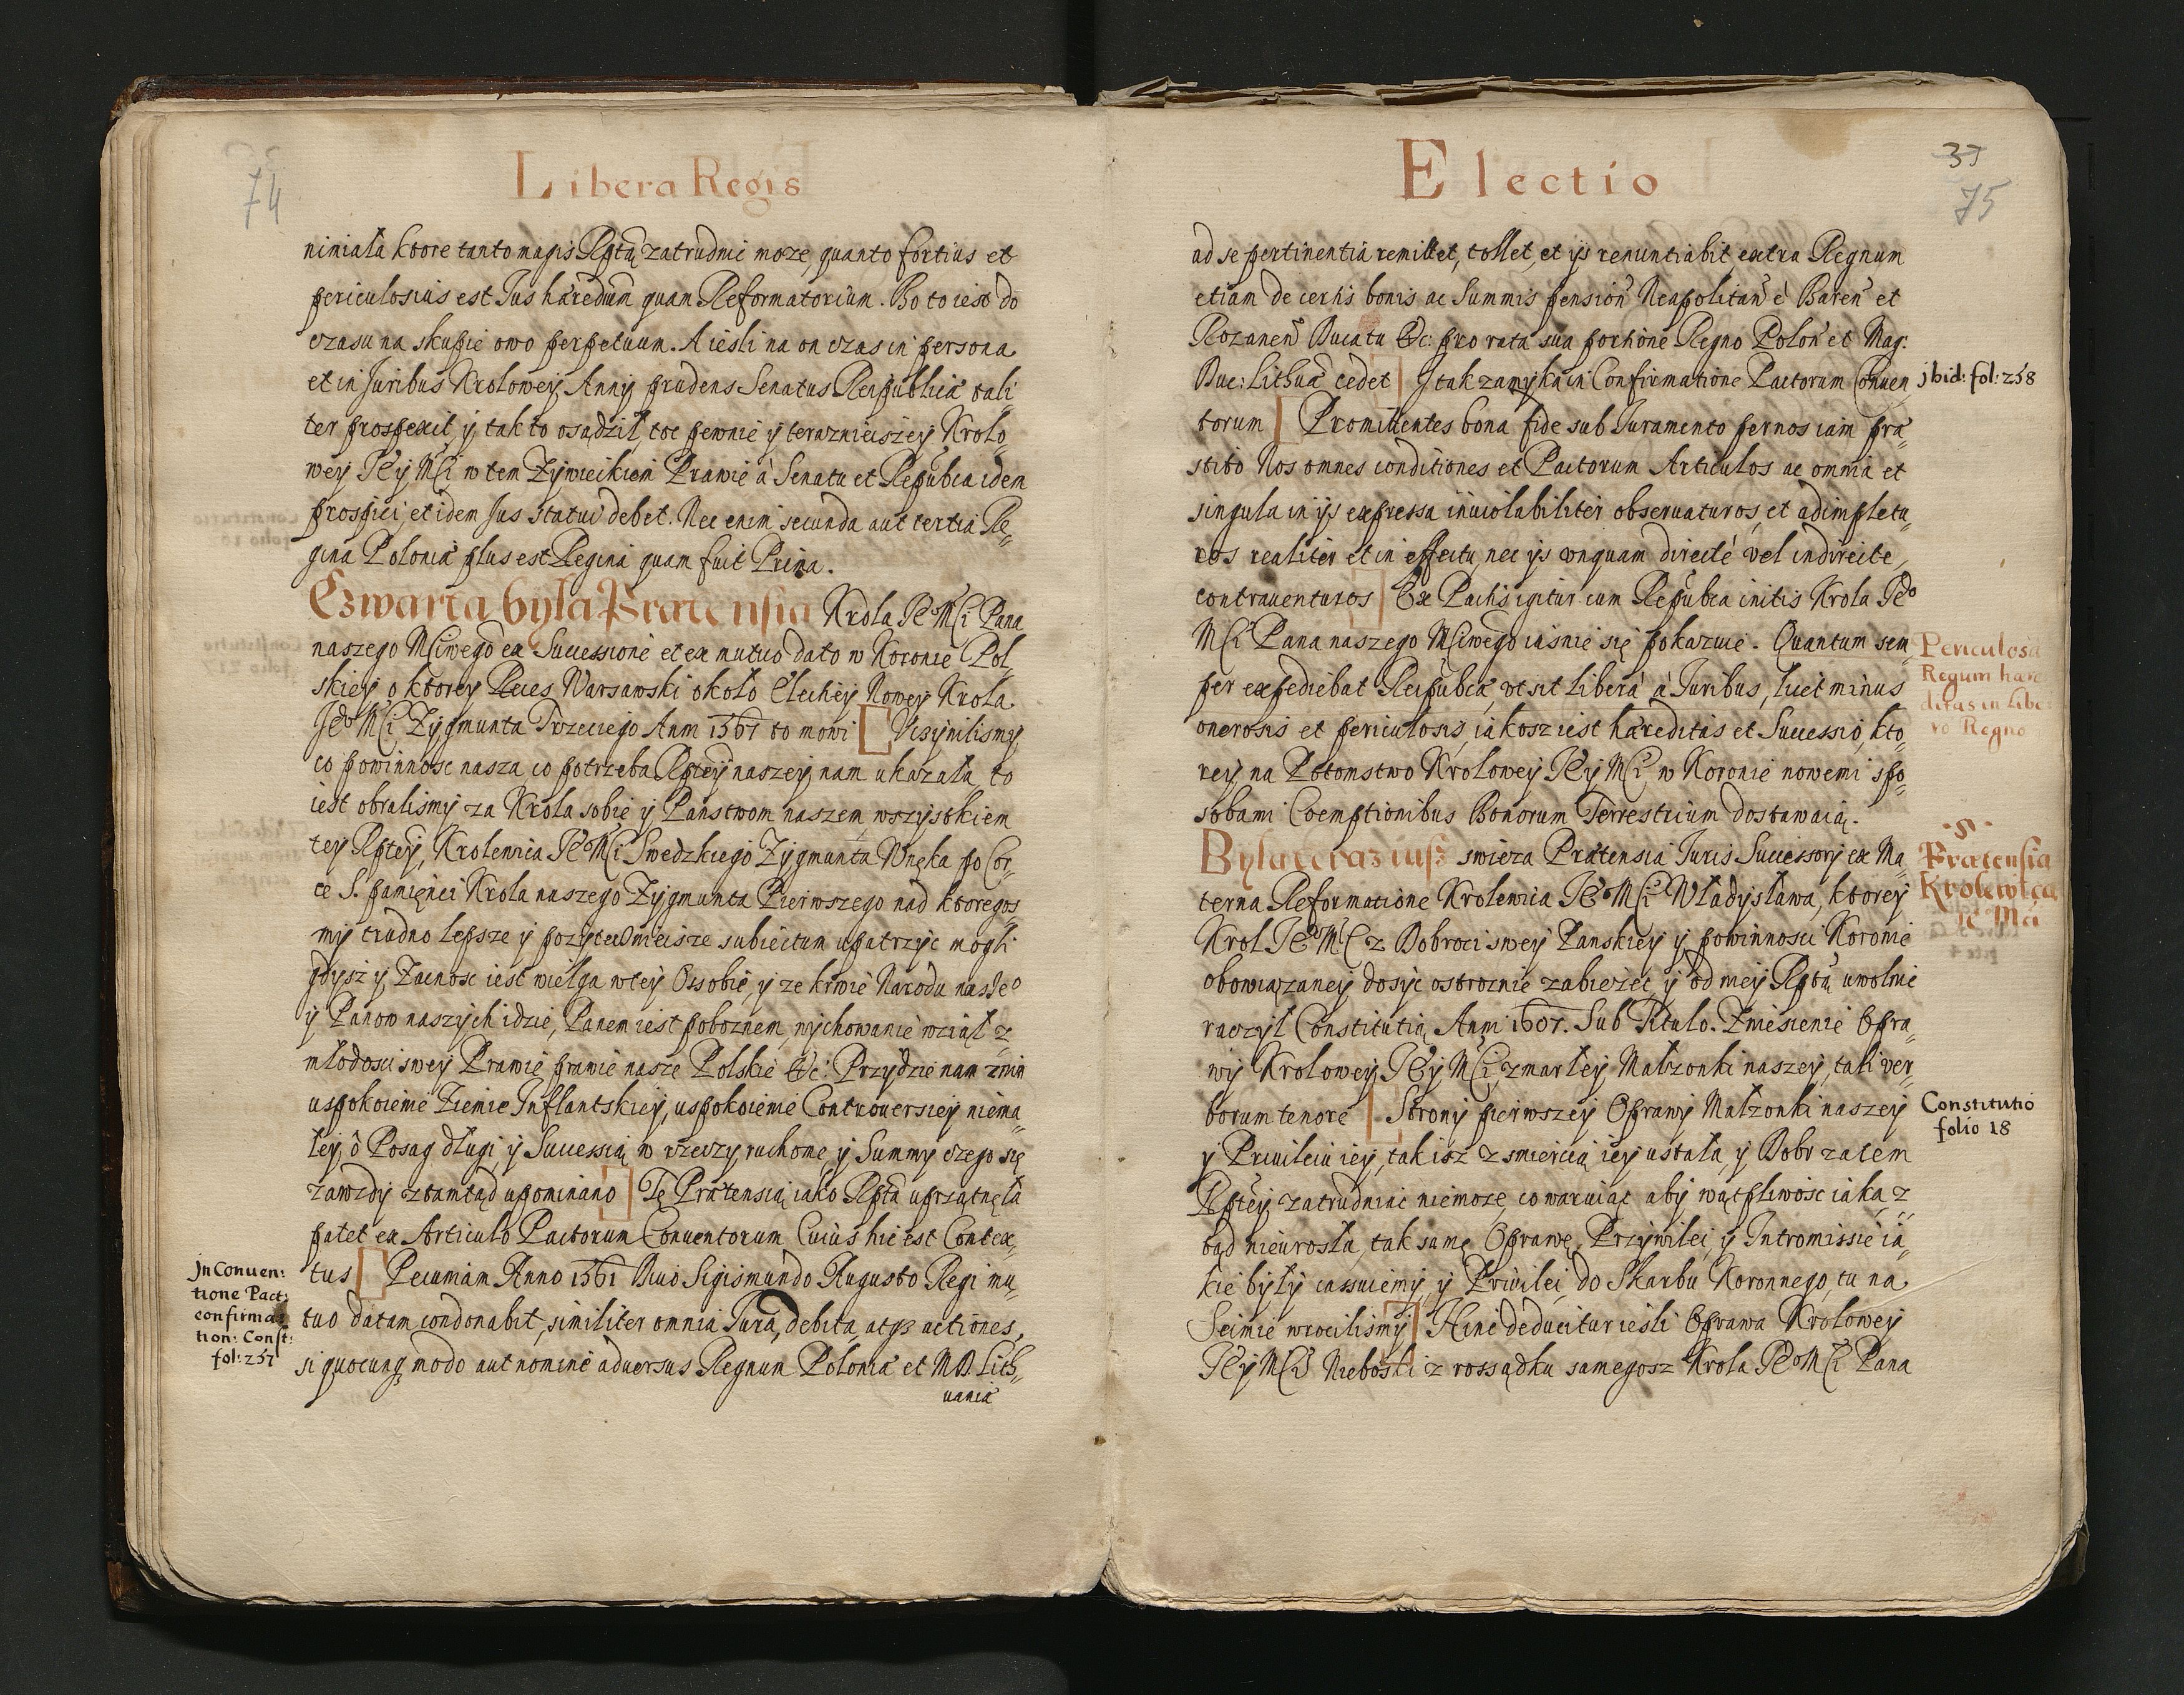 74
Libera Regis
niniała ktore tanto magis Rptą zatrudnić może, quanto fortius et
periculosius est Jus hæredum quam Reformatorium. Bo to iest do
czasu na skupie owo perpetuum. A iesli na on czas in persona
et in Juribus Krolowey Anny prudens Senatus Reipublicæ tali¬
ter prospexit, y tak to osądził, toć pewnie y terazniejszey Krolo¬
wey JEy MCi w tem Zywieckiem Prawie à Senatu et Repubca idem
prospici, et idem Jus statui debet. Nec enim secunda aut tertia Re¬
gina Poloniæ plus est Regina quam fuit Prima.
Czwarta była Prætensia Krola JE° MCi Pana
naszego MCiwego ex Successione et ex mutuo dato w Koronie Pol¬
skiey o ktorey Reces Warszawski około Elekciey Nowey Krola
JE° MCi Zygmunta Trzeciego Anni 1587 to mowi [ Uczynilismy
co powinnosc nasza, co potrzeba Rptey naszey nam ukazała, to
iest obralismy za Krola sobie y Panstwom naszem wszystkiem
tey Rptey, Krolewica JE° MCi Swedzkiego Zygmunta Wnęka po Cor¬
ce S. pamięnci Krola naszego Zygmunta Pierwszego nad ktoregos¬
my trudno lepsze y pozyteczniejsze subiectum upatrzyc mogli
gdysz y Zacnosc iest wielga w tey Ossobie, y ze krwie Narodu nasze°
y Panow naszych idzie, Panem iest poboznem, wychowanie wziął z
młodosci swey Prawie prawie nasze Polskie &c: Przydzie nam z nim
uspokoienie Ziemie Inflantskiey, uspokoienie Controuersiey niema¬
łey, ô Posag długi, y Successią w rzeczy ruchome, y Summy czego się
zawzdy z tamtąd upominano ] Tę Prætensią iako Rpta uprzątnęła
patet ex Articulo Pactorum Conuentorum Cuius hic est Contex¬
tus [ Pecuniam Anno 1561 Diuo Sigismundo Augusto Regi mu¬
tuo datam condonabit, similiter omnia Jura, debita, atq; actiones,
si quocunq; modo aut nomine aduersus Regnum Poloniæ et M.D. Lith¬
uaniæ
Jn Conuen:
tione Pact:
confirma
tion: Const:
fol: 257
Electio
37
75
ad se pertinentia remittet, tollet, et ijs renuntiabit, extra Regnum
etiam de certis bonis ac Summis pension Neapolitan è Baren et
Rozanen Ducatu &c: pro rata sua portione Regno Polon et Mag:
Duc: Lithuæ cedet ] Jtak zamyka in Confirmatione Pactorum Conuen
torum [ Promittentes bona fide sub Juramento per nos iam præ¬
stito Nos omnes conditiones et Pactorum Articulos ac omnia et
singula in ijs expressa inuiolabiliter obseruaturos, et adimpletu¬
ros realiter et in effectu, nec ijs vnquam directé vel indirecte,
contrauenturos ] Ex Pactis igitur cum Repubca initis Krola JE°
MCi Pana naszego MCiwego iasnie się pokazuie. Quantum sem¬
per expediebat Reipubcæ, vt sit libera à Juribus, licet minus
onerosis et periculosis, iakosz iest hæreditas et Successio, kto¬
rey na Potomstwo Krolowey JEy MCi w Koronie nowemi spo¬
sobami Coemptionibus Bonorum Terrestrium dostawaią.
Była teraz iusz swieza Prætensia Juris Successory ex Ma¬
terna Reformatione Krolewica JE° MCi Władysława, ktorey
Krol JE° MC z Dobroci swey Panskiey y powinnosci Koronie
obowiązaney dosyc ostroznie zabiezec, y od niey Rptą uwolnic
raczył Constitutią Anni 1607. Sub Titulo. Zniesienie Opra¬
wy Krolowey JEy MCi, zmarłey Małzonki naszey, tali ver¬
borum tenore [ Strony pierwszey Oprawy Małzonki naszey
y Priuileiu iey, tak isz z smiercią iey ustała, y Dobr zatem
Rptey zatrudniac niemoze, co waruiąc aby wątpliwosc iaka z
tąd nieurosła, tak samę Oprawę, Przywilei, y Intromissie ia¬
kie były cassuiemy, y Priuilei do Skarbu Koronnego, tu na
Seimie wrocilismy ] Hinc deducitur iesli Oprawa Krolowey
JEy MCi Nieboski z rossądku samegosz Krola JE° MCi Pana
jbid: fol: 258
Periculosa
Regum hære
ditas in Libe
ro Regno
5
Prætensia
Krolewica
JE° MCi
Constitutio
folio 18